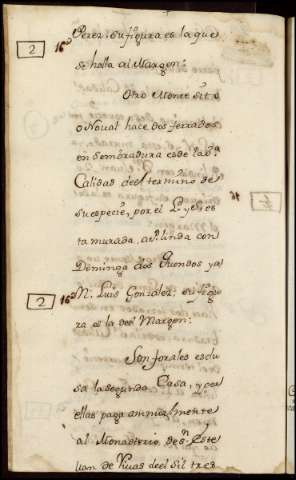 2
Perez: su figura es la que
se halla al Margen:
Otro Monte sito
o Noval hace dos ferrados
en sembradura es de la
Calidad del termino de
su especie, por el L. y es
ta murada, linda con
Domingo dos y a
2
N. Luis Gonzalez: su figu
ra es la del Margen:
Son forales esclu
sa la segunda Casa, y
ellas paga annualmente
al Monasterio de Sn. Este
van de Rivas del Sil tres